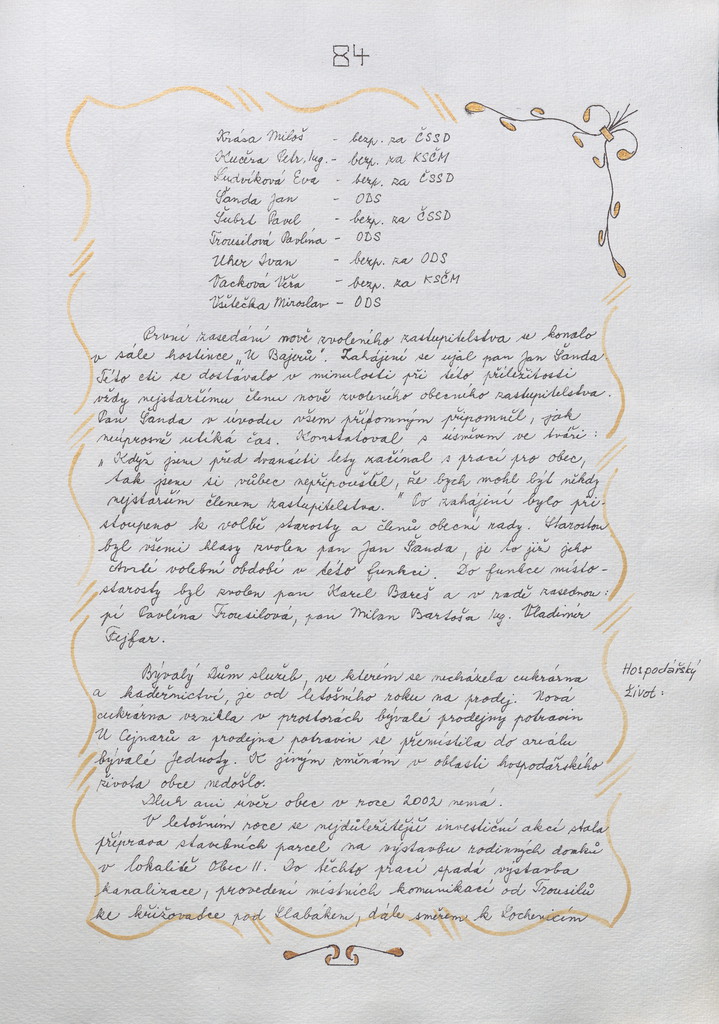 84
Krása Miloš - bezp. za ČSSD
Kučera Petr, Ing. - bezp. za KSČM
Ludvíková Eva - bezp. za ČSSD
Šanda Jan - ODS
Šubrt Pavel - bezp. za ČSSD
Trousilová Pavlína - ODS
Uher Ivan - bezp. za ODS
Vacková Věra - bezp. za KSČM
Všetečka Miroslav - ODS
První zasedání nově zvoleného zastupitelstva se konalo
v sále hostince „U Bajerů". Zahájení se ujal pan Jan Šanda.
Této cti se dostávalo v minulosti při této příležitosti
vždy nejstaršímu členu nově zvoleného obecního zastupitelstva.
Pan Šanda v úvodu všem přítomným připomněl, jak
neúprosně utíká čas. Konstatoval s úsměvem ve tváři:
„Když jsem před dvanácti lety začínal s prací pro obec,
tak jsem si vůbec nepřipouštěl, že bych mohl být někdy
nejstarším členem zastupitelstva." Po zahájení bylo při-
stoupeno k volbě starosty a členů obecní rady. Starostou
byl všemi hlasy zvolen pan Jan Šanda, je to již jeho
čtvrté volební období v této funkci. Do funkce místo-
starosty byl zvolen pan Karel Bareš a v radě zasednou:
pí Pavlína Trousilová, pan Milan Bartoš a Ing. Vladimír
Fejfar.
Hospodářský
život:
Bývalý Dům služeb, ve kterém se nacházela cukrárna
a kadeřnictví, je od letošního roku na prodej. Nová
cukrárna vznikla v prostorách bývalé prodejny potravin
U Cejnarů a prodejna potravin se přemístila do areálu
bývalé Jednoty. K jiným změnám v oblasti hospodářského
života obce nedošlo.
Dluh ani úvěr obec v roce 2002 nemá.
V letošním roce se nejdůležitější investiční akcí stala
příprava stavebních parcel na výstavbu rodinných domků
v lokalitě Obec II. Do těchto prací spadá výstavba
kanalizace, provedení místních komunikací od Trousilů
ke křižovatce pod Slabákem, dále směrem k Lochenicím